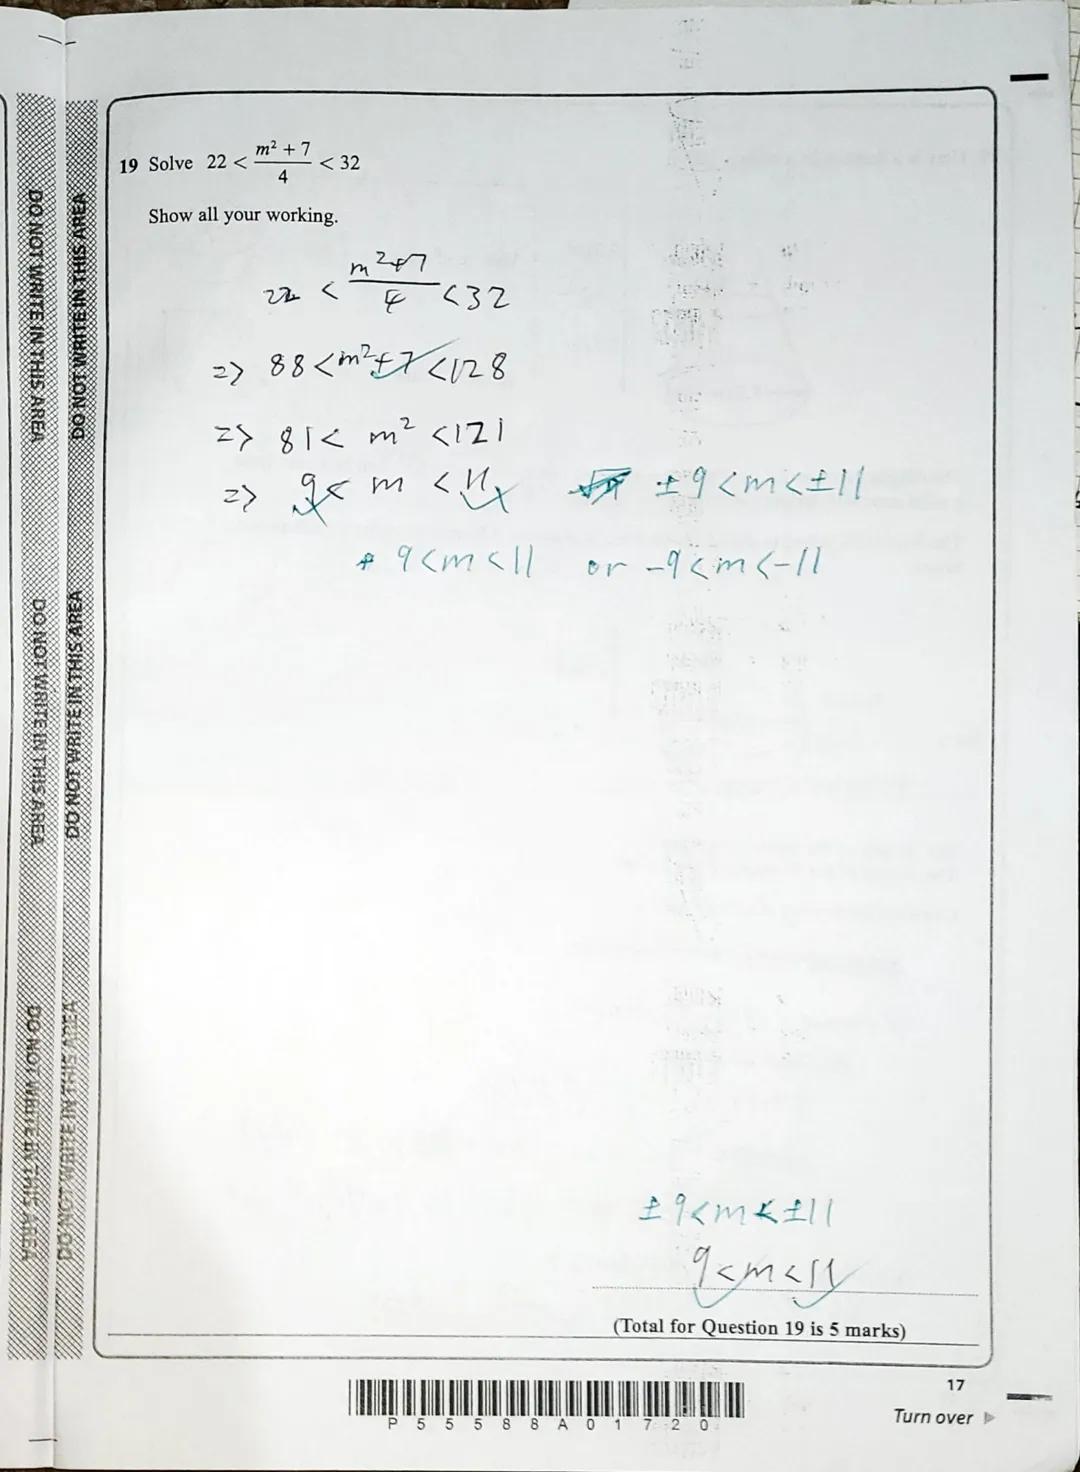 19 Solve 22 < (m² + 7)/4 < 32
Show all your working.
22 < (m²+7)/4 < 32
=> 88 < m²+7 < 128
=> 81 < m² < 121
=> 9 < m < 11 ±9 < m < ±11
9 < m < 11 or -9 < m < -11
±9 < m < ±11
9 < m < 11
(Total for Question 19 is 5 marks)
17
P 5 5 5 8 8 A 0 1 7 2 0
Turn over
DO NOT WRITE IN THIS AREA
DO NOT WRITE IN THIS AREA
DO NOT WRITE IN THIS AREA
DO NOT WRITE IN THIS AREA
DO NOT WRITE IN THIS AREA
DO NOT WRITE IN THIS AREA